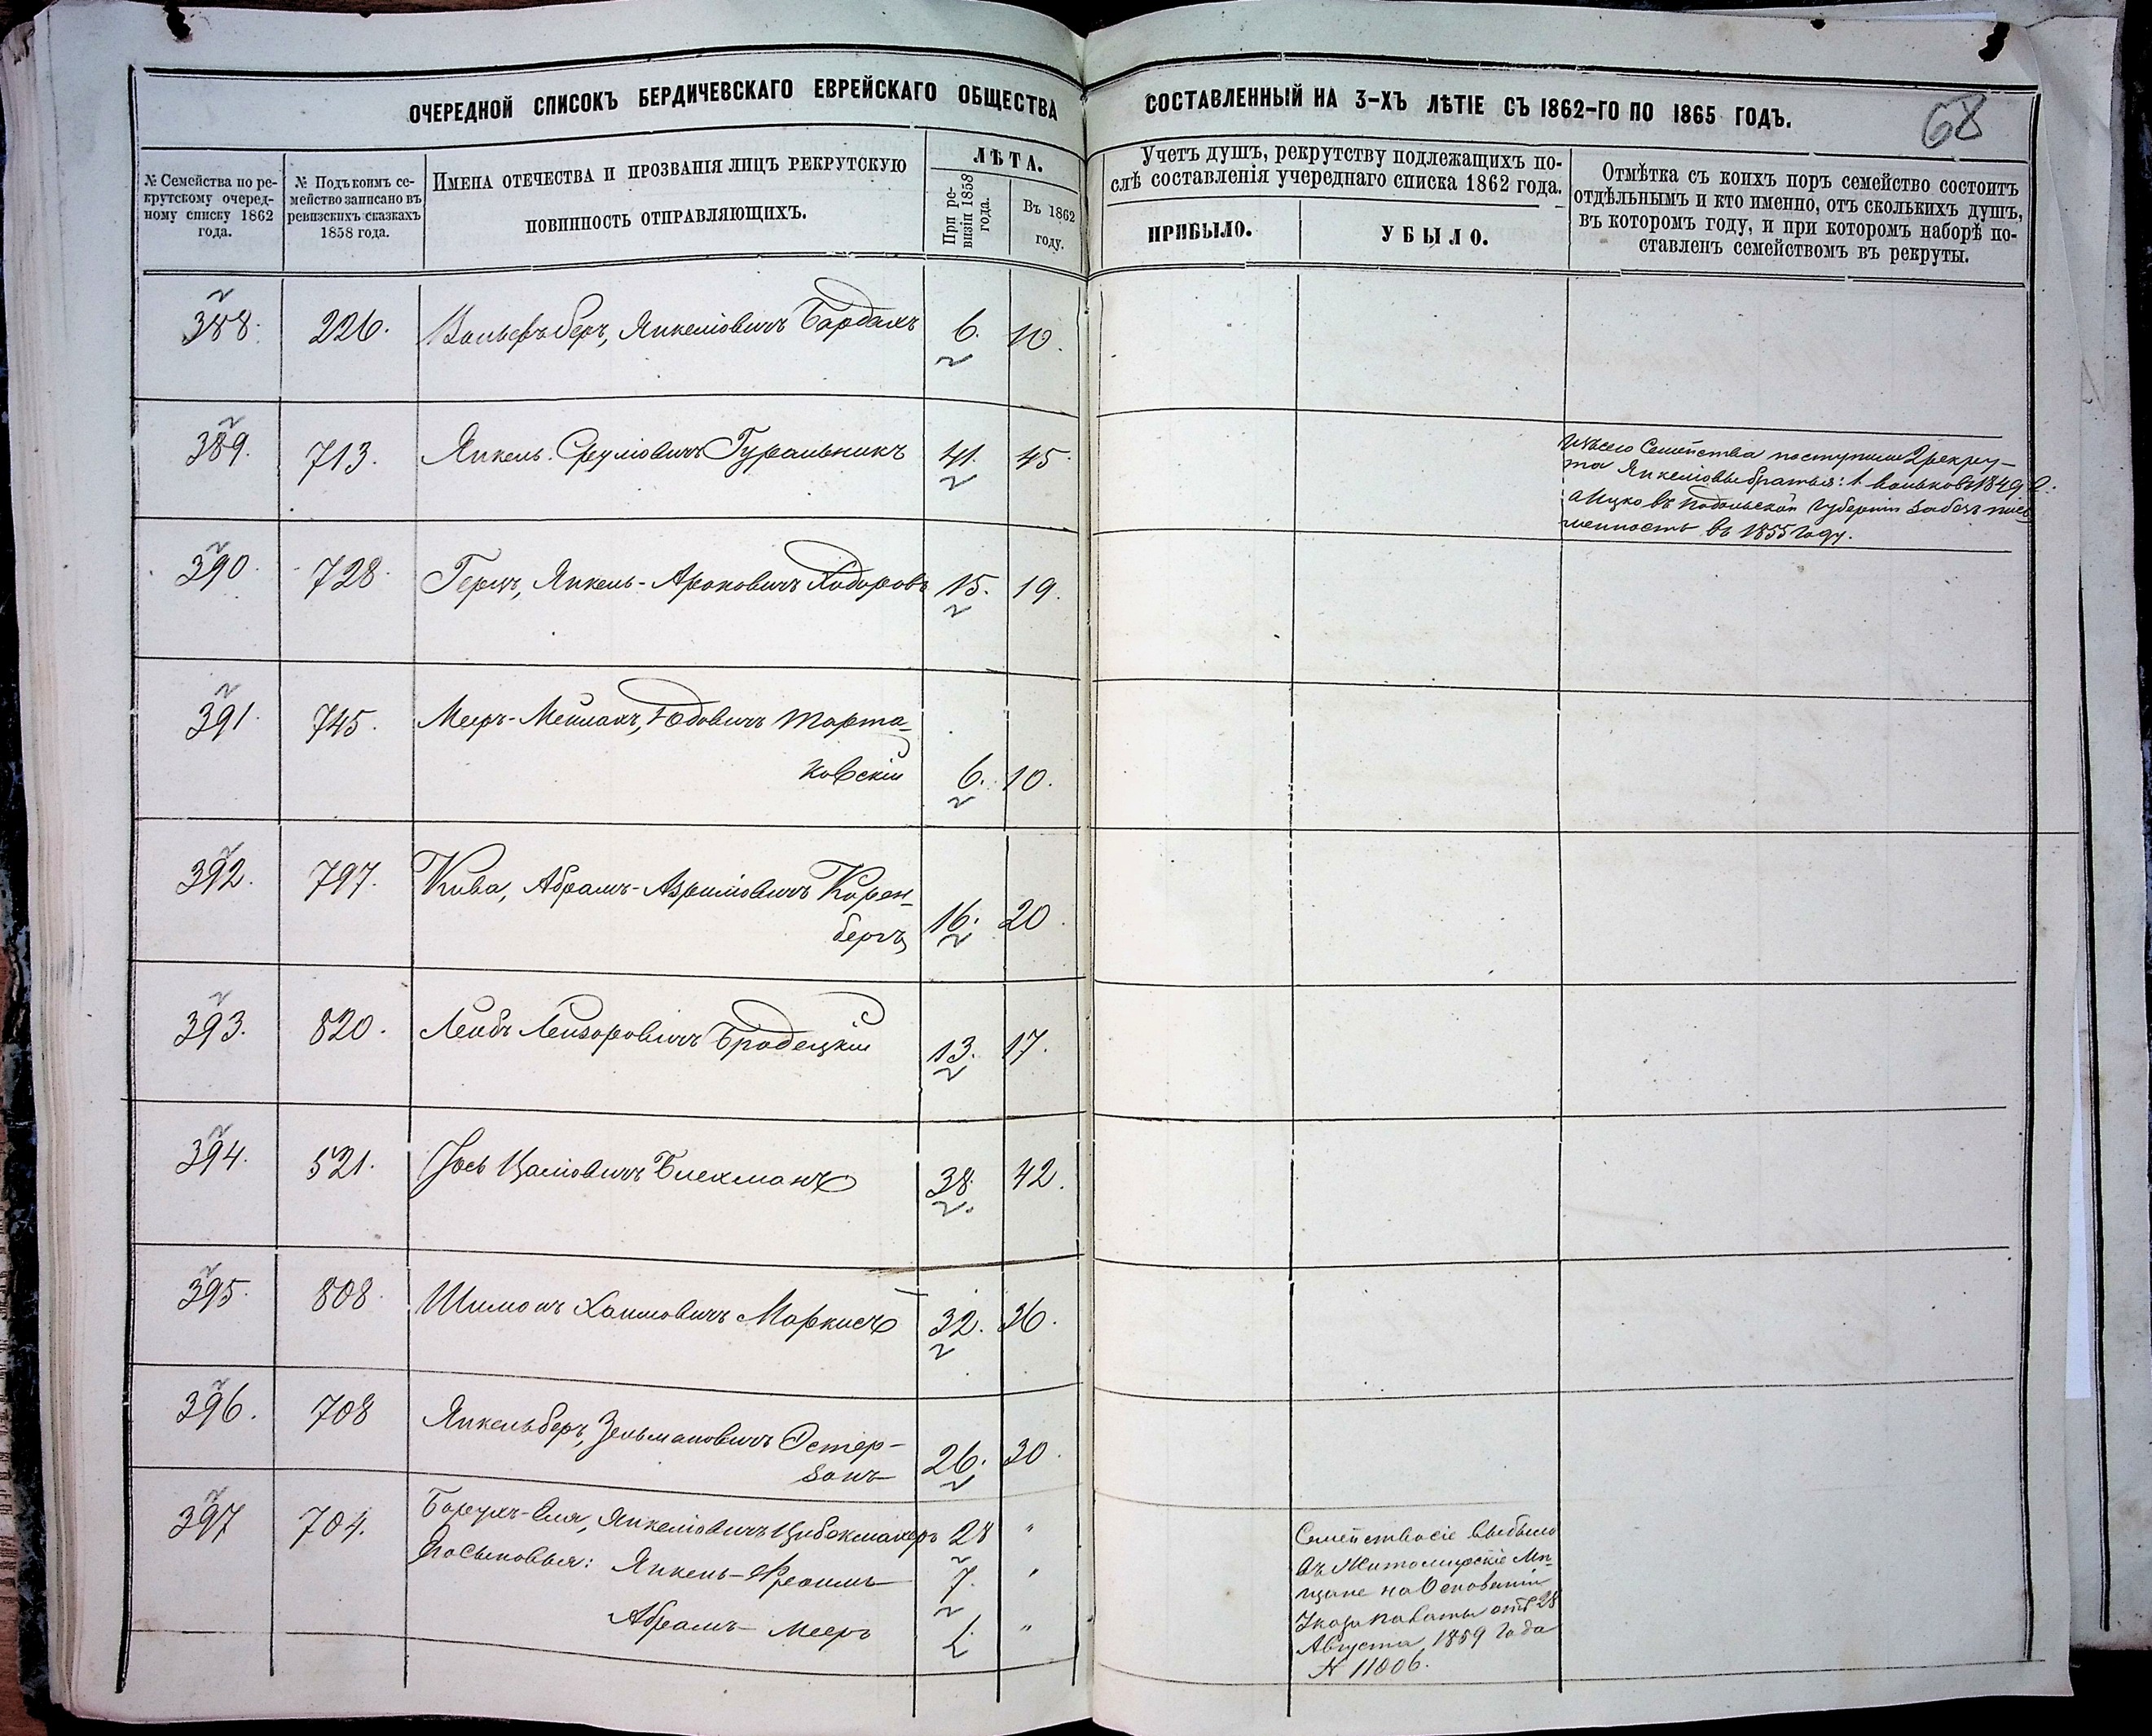 ОЧЕРЕДНОЙ СПИСОКЪ БЕРДИЧЕВСКАГО ЕВРЕЙСКАГО ОБЩЕСТВА СОСТАВЛЕННЫЙ НА 3-ХЪ ЛѢТІЕ СЪ 1862-ГО ПО 1865 ГОДЪ.
68
№ Семейства по ре-
крутскому очеред-
ному списку 1862
года.
№ Подъ коимъ се-
мейство записано въ
ревизскихъ сказкахъ
1858 года.
ИМЕНА ОТЕЧЕСТВА И ПРОЗВАНІЯ ЛИЦЪ РЕКРУТСКУЮ
ПОВИННОСТЬ ОТПРАВЛЯЮЩИХЪ.
ЛѢТА.
При ре-
визіи 1858
года.
Въ 1862
году.
Учетъ душъ, рекрутству подлежащихъ по-
слѣ составленія учереднаго списка 1862 года.
ПРИБЫЛО.
УБЫЛО.
Отмѣтка съ коихъ поръ семейство состоитъ
отдѣльнымъ и кто именно, отъ сколькихъ душъ,
въ которомъ году, и при которомъ наборѣ по-
ставленъ семействомъ въ рекруты.
388. 226. Вольфъ беръ, Янкеліовичъ Бардахъ 6. 10.
389. 713. Янкель Сруліовичъ Гуральникъ 41. 45.
Изъ сего Семейства поступили 2 рекру-
та Янкеліовы братья: 1. 1849 г.
Ицко въ Подольской Губерніи за безъ пись
менность въ 1855 году.
390. 728. Герцъ, Янкель-Ароновичъ Ходоровъ 15. 19.
391. 745. Меръ-Мейлахъ, Юдовичъ Марта-
ковскій 6. 10.
392. 797. Кива, Абрамъ-Азриліовичъ Корен-
бергъ 16. 20.
393. 820. Лейбъ Лейзоровичъ Бродецкій 13. 17.
394. 521. Іось Цаліовичъ Блехманъ 38. 42.
395. 808. Шимонъ Хаимовичъ Маркисъ 32. 36.
396. 708 Янкель беръ, Зельмановичъ Остер-
зонъ 26. 30.
397 704. Борухъ-Еля, Янкеліовичъ Цибокмахеръ 28 "
Сыновья: Янкель-Фроимъ 7. "
Абрамъ-Меръ 1. "
Семейство сіе выбыло
въ Житомирскіе Мѣ-
щане на Основаніи
Указа палаты отъ 28
Августа 1859 года
№ 11006.